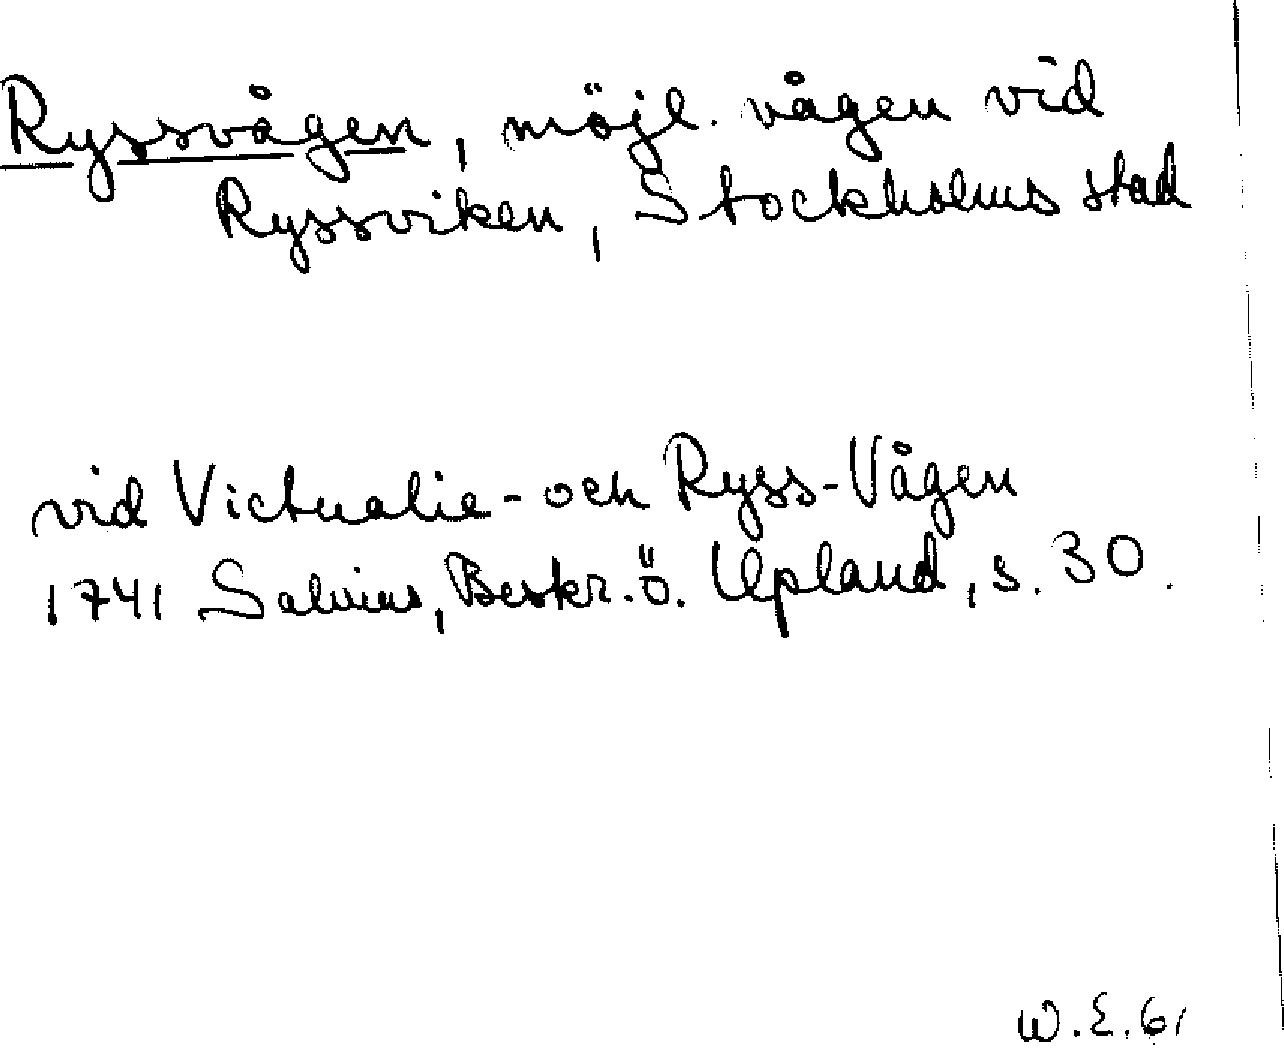 Ryssvågen, möjl. vågen vid
Ryssviken, Stockholms stad
vid Victualie- och Ryss-Vågen
1741 Salvius, Beskr. ö. Upland, s. 30.
W.E.61